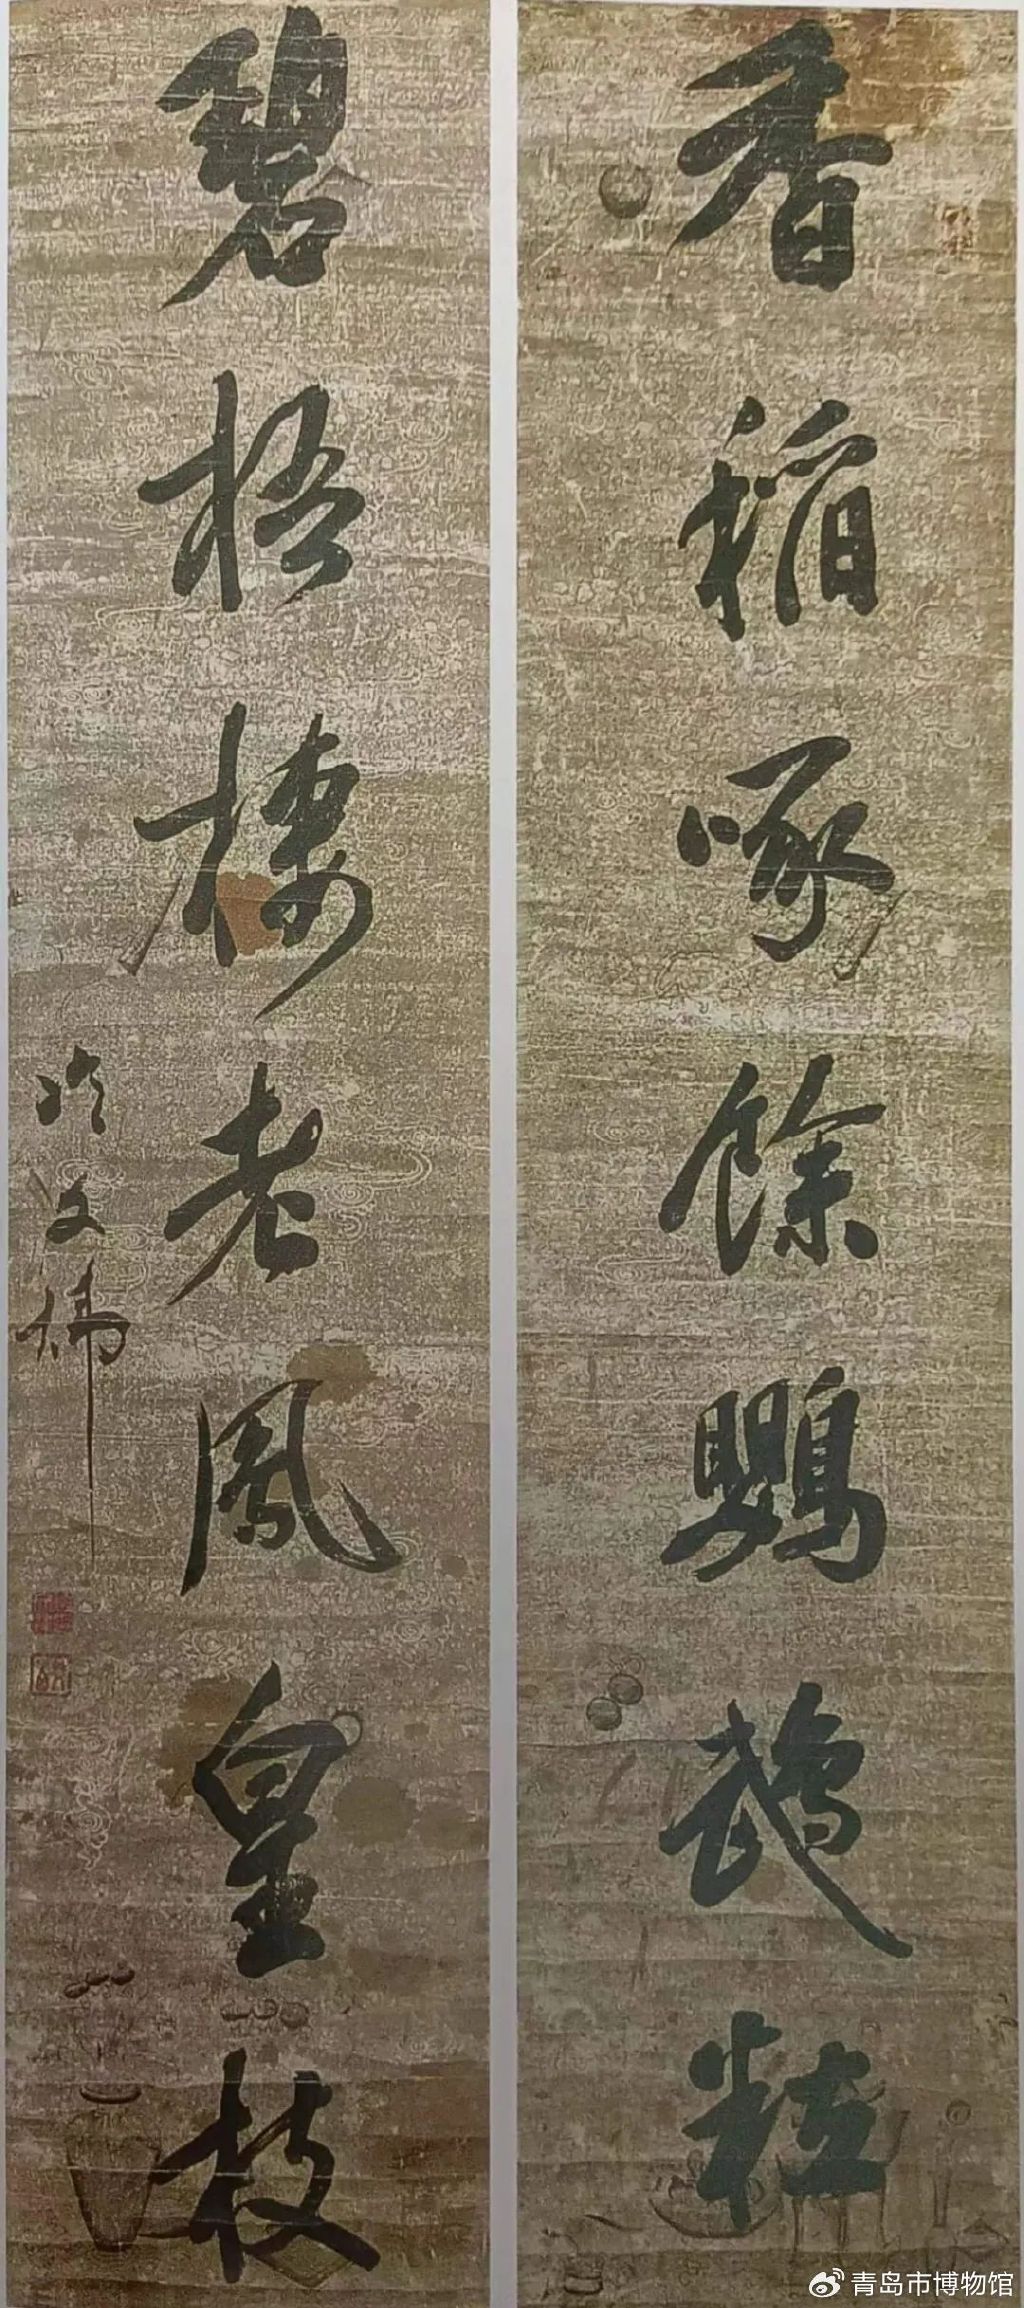 香稻啄餘鸚鵡粒
碧梧棲老鳳皇枝
冷文煒
青岛市博物馆